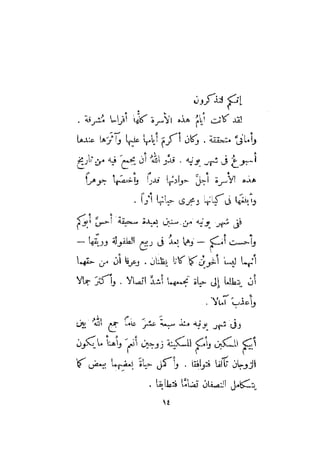 إنكم لتذكرون
لقد كانت أيامُ هذه الأسرة كلُّها أفراحا مُشرقة .
وأمانىَّ متحققة . وكان أكرمَ أيامها عليها وآثَرَها عندها
أسبوعٌ فى شهر يونيه . قدّر اللهُ أن يجمعَ فيه من تاريخ
هذه الأسرة أجلَّ حوادثها قدرًا وأخصَّها جوهرًا
وأبلغَها فى كيانها ومجرى حياتها أثرًا .
ففى شهر يونيه من سنين بعيدة سحيقة أحسَّ أبوكم
وأحست أمكم — وهما بعدُ فى ربيع الطفولة وريِّقها —
أنهما ليسا أخوين كما كانا يظنان . وعرفا أن من حقهما
أن يتطلعا إلى حياة تجمعهما أشدَّ اتصالا . وأكثرَ جمالا
وأعذبَ آمالا .
وفى شهر يونيه منذ سبعةَ عشرَ عامًا جمع اللهُ بين
أبيكم المسكين وأمكم المسكينة زوجين أنعمَ وأهنأَ ما يكون
الزوجان تآلفا فتوافقا . وأكملَ حياةً بعضِهما ببعض كما
يتكامل النصفان تضامًّا فتطابقا .
١٤